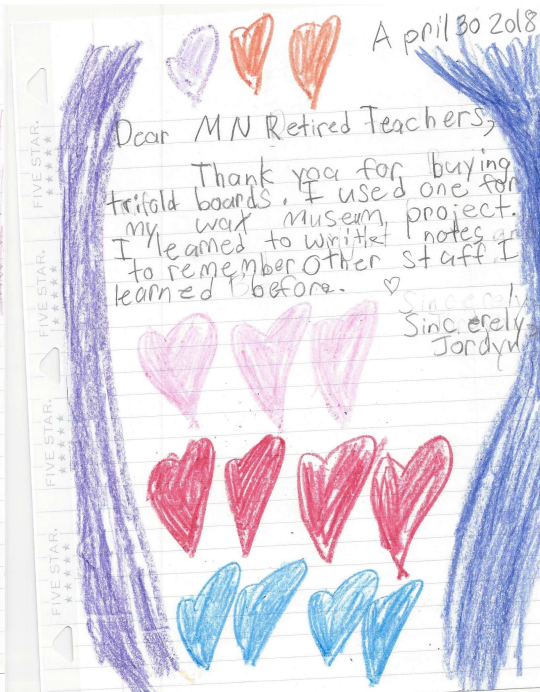 April 30 2018
Dear MN Retired Teachers,
Thank you for buying
trifold boards. I used one for
my wax museum project.
I learned to notes
to remember other staff I
learned before. ♡
Sincerely
Sincerely
Jordyn
FIVE STAR.
FIVE STAR.
FIVE STAR.
FIVE STAR.